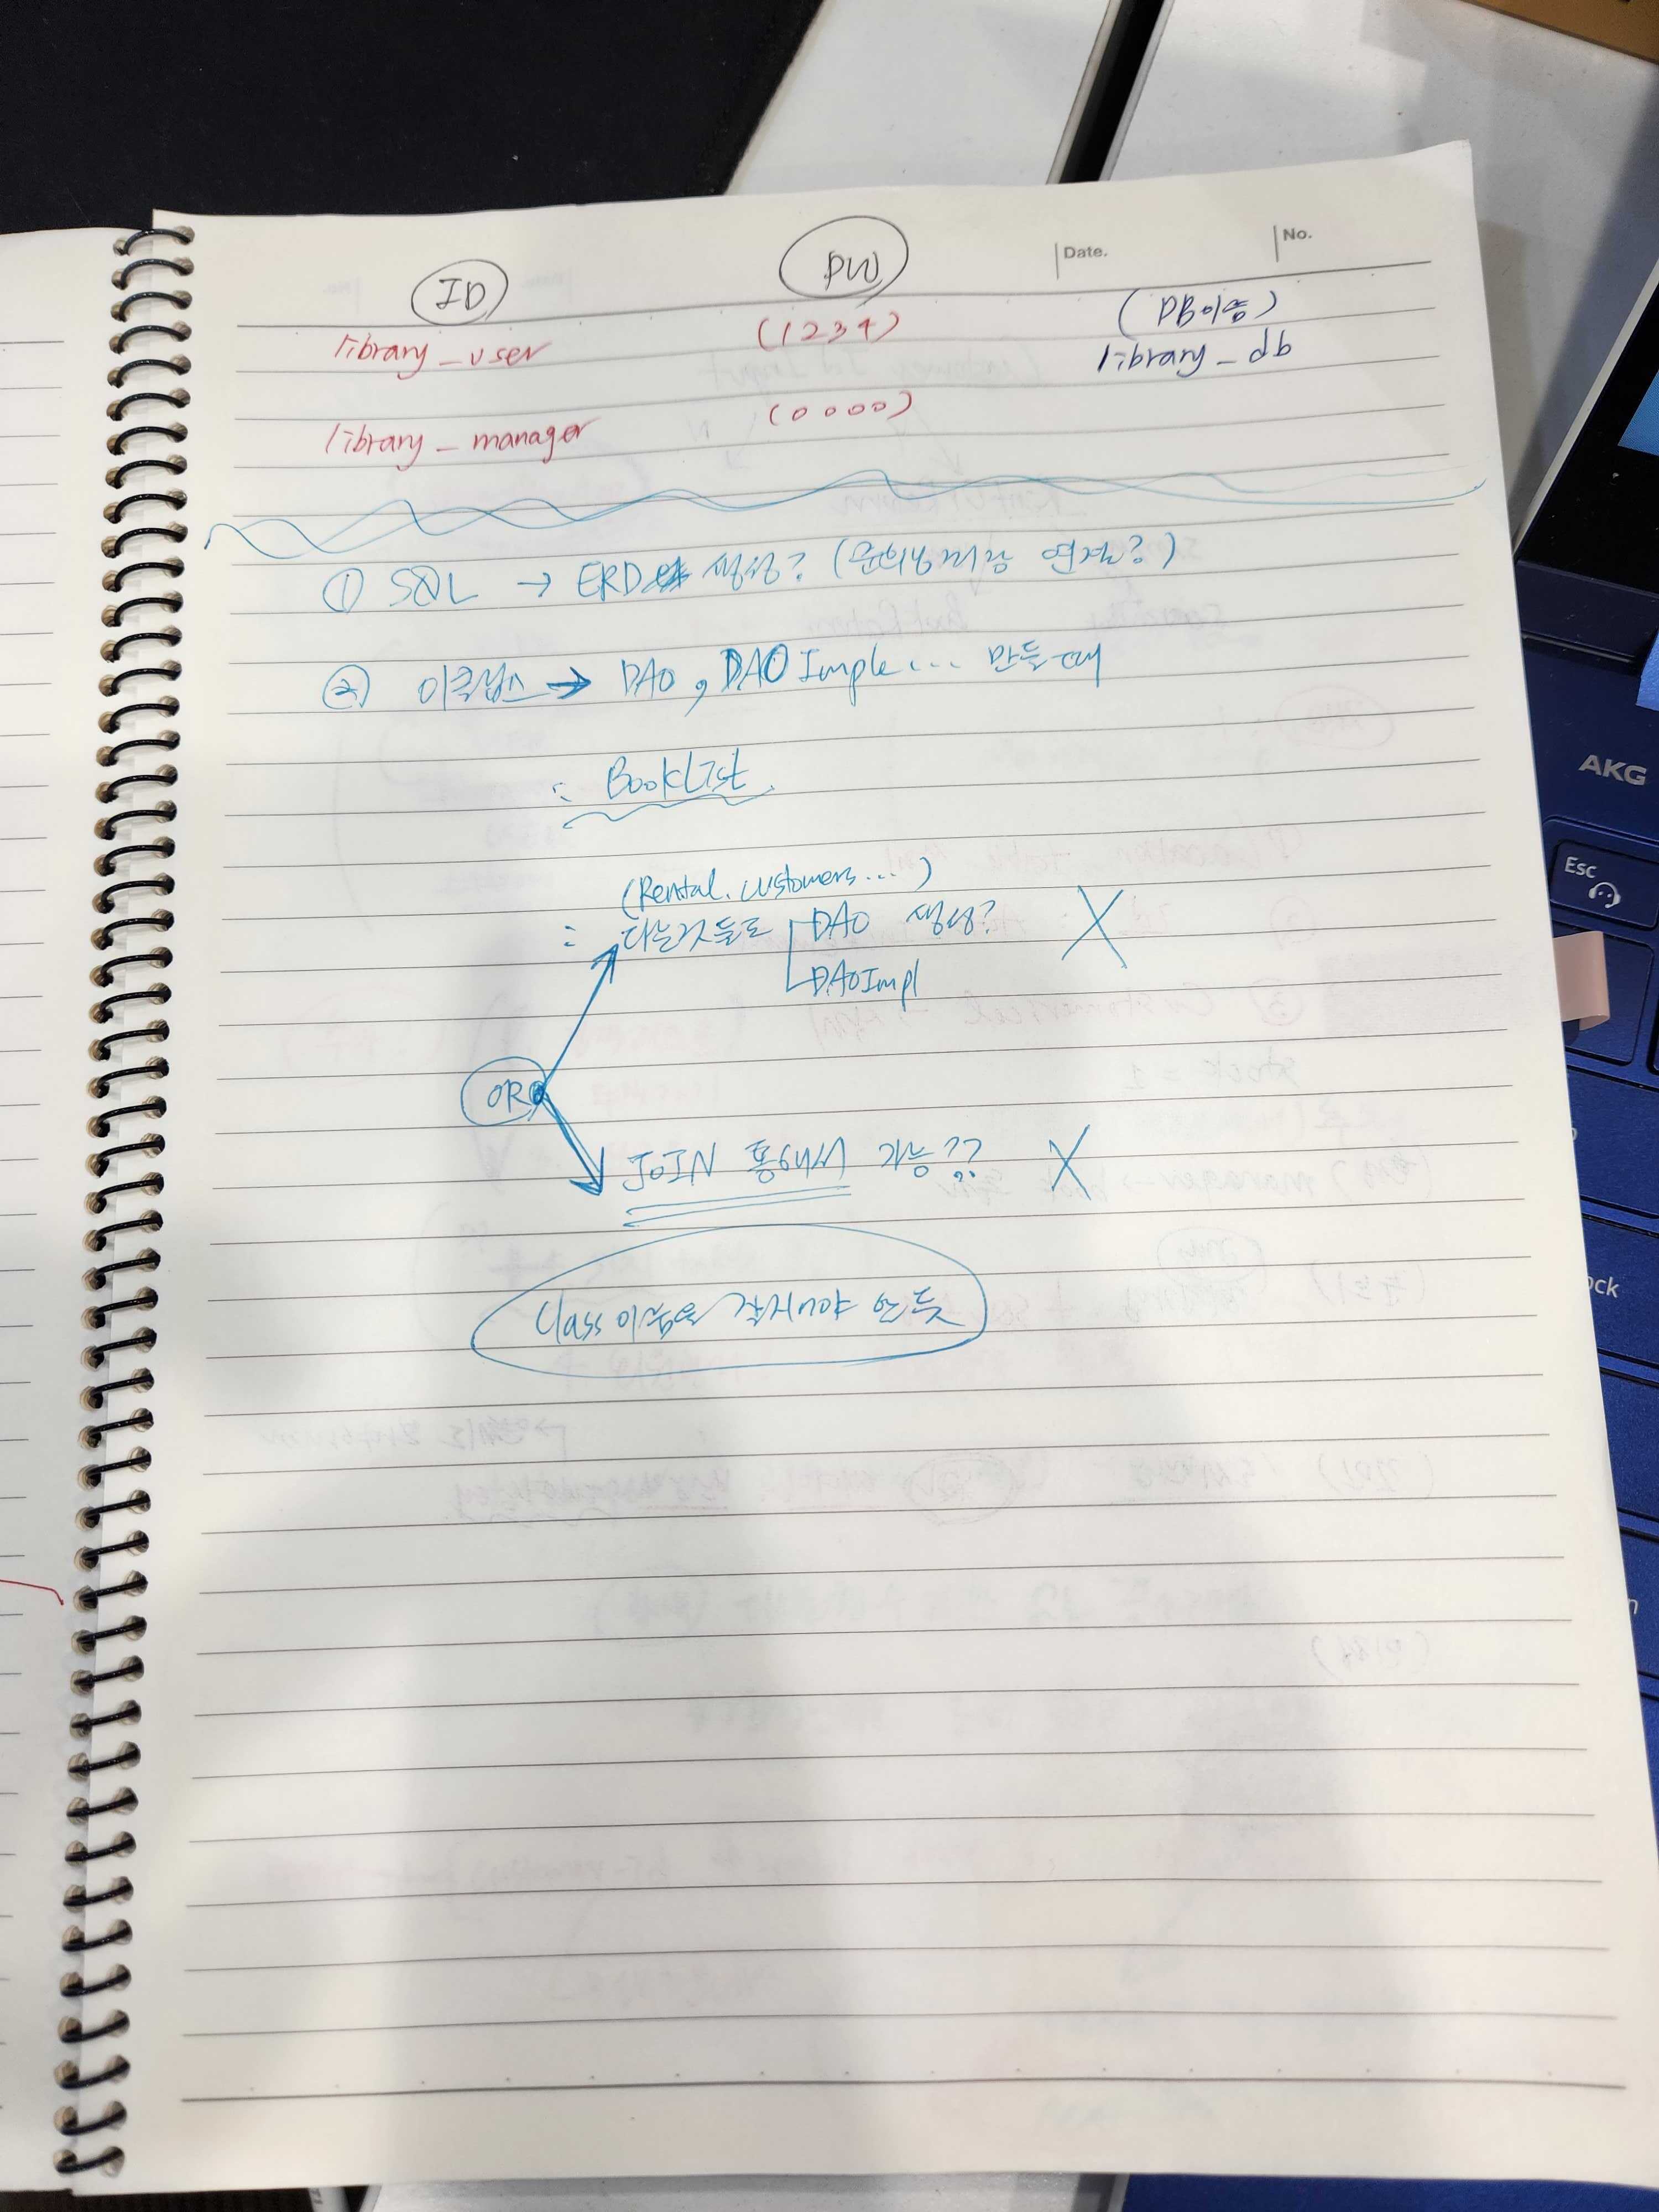 Date.
No.
ID
PW
(DB이름)
library_user
(1234)
library_db
library_manager
(0000)
① SQL → ERD 생성? (문의사항 연결?)
② 이클립스 → DAO, DAO Imple... 만들때
: BookList
(Rental. customers...)
: 다른것들로 DAO 생성? X
DAOImpl
OR
JOIN 통해서 가능?? X
Class 이름을
AKG
Esc